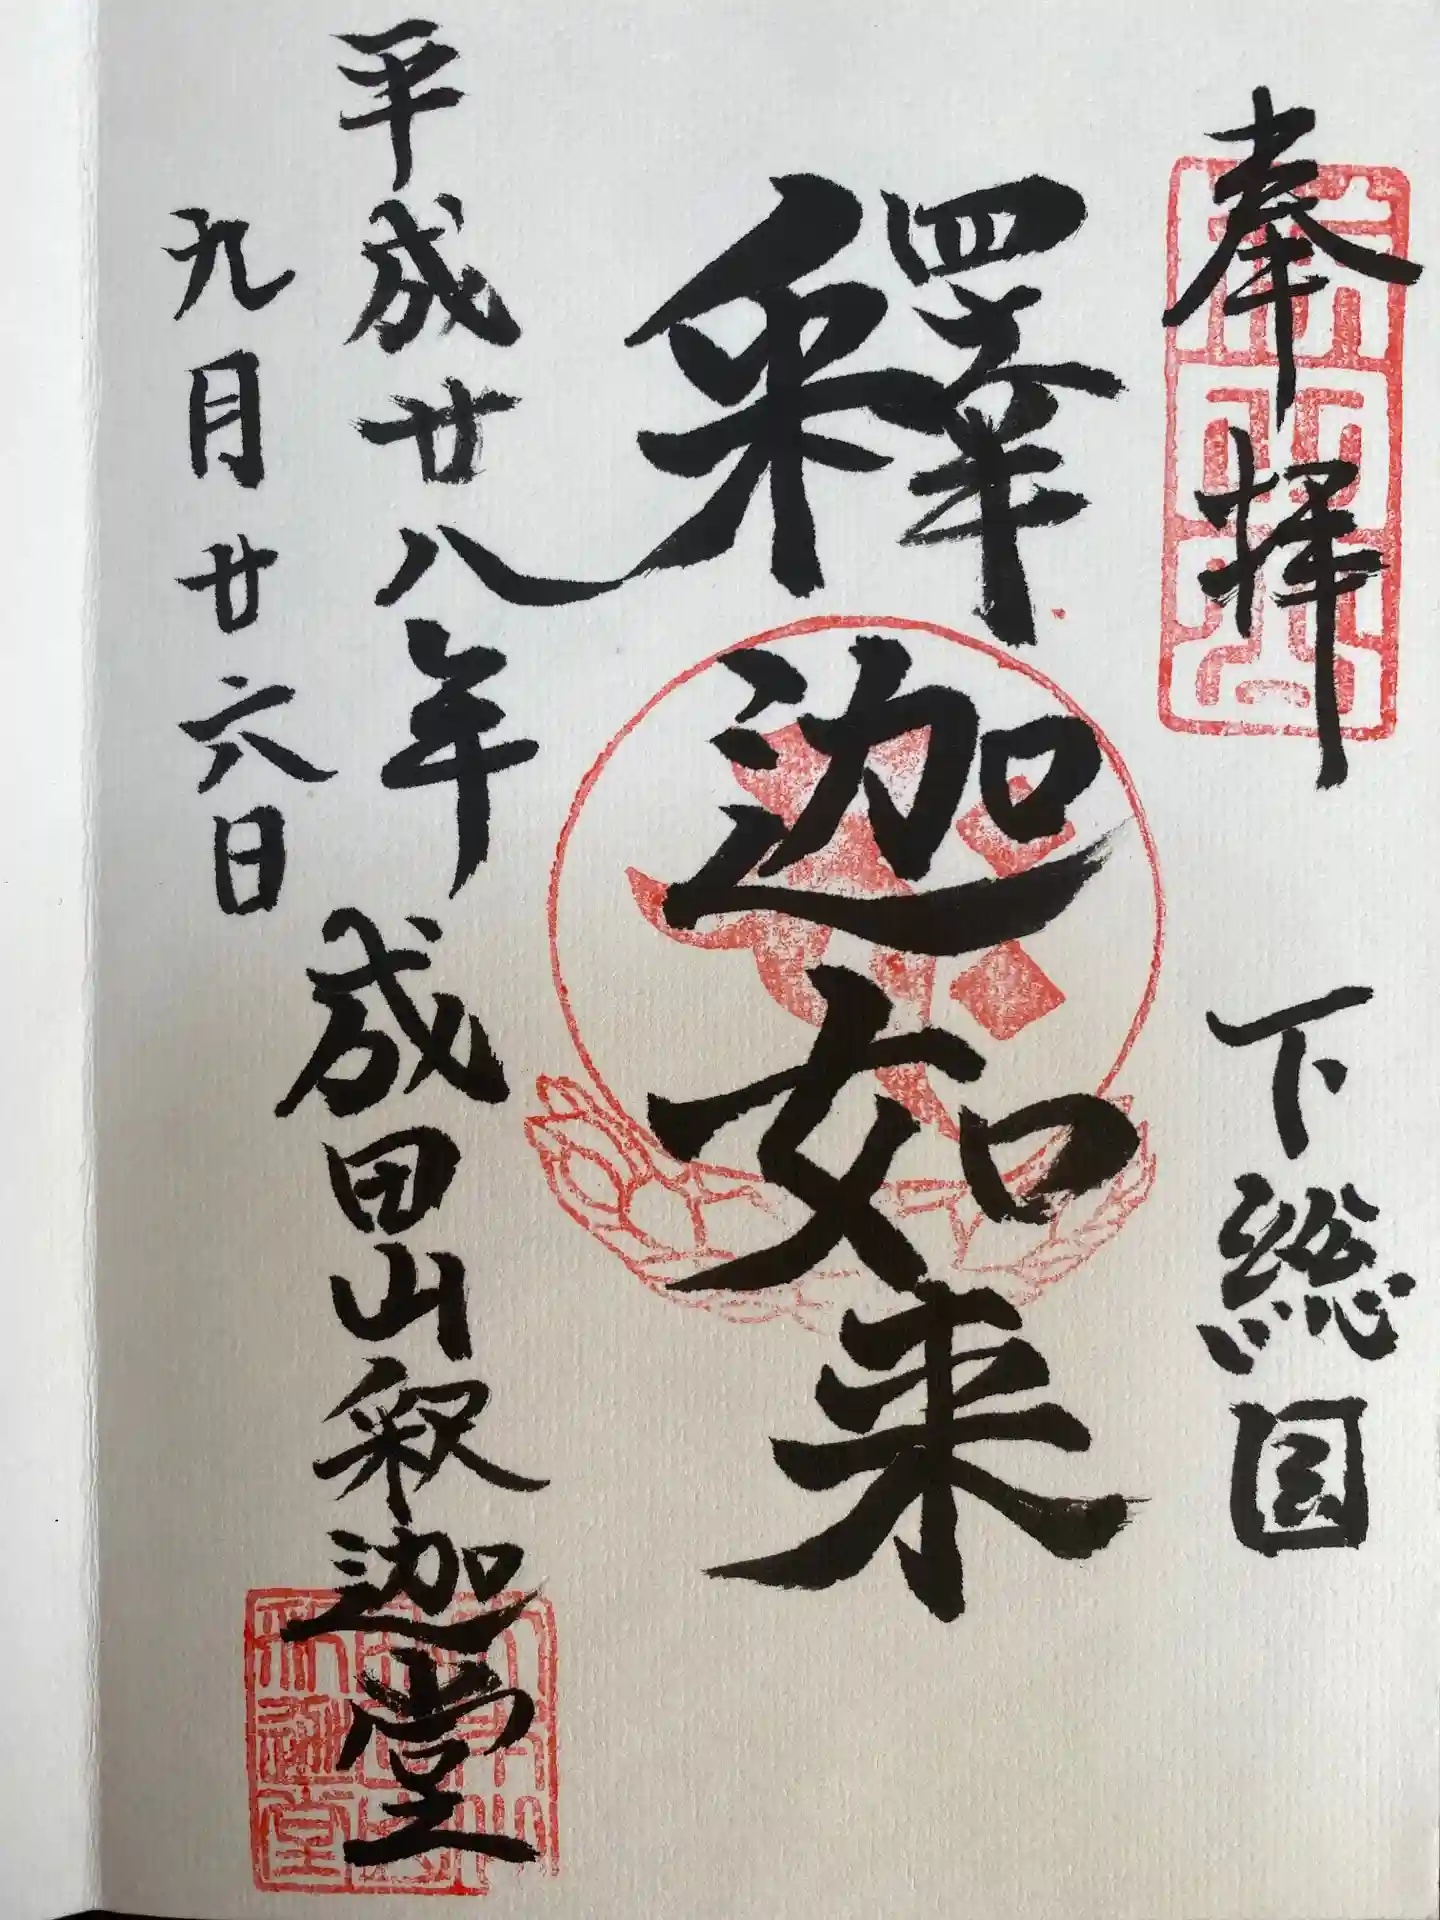 奉拝　下総国
釋迦如来
平成廿八年　成田山釈迦堂
九月廿六日